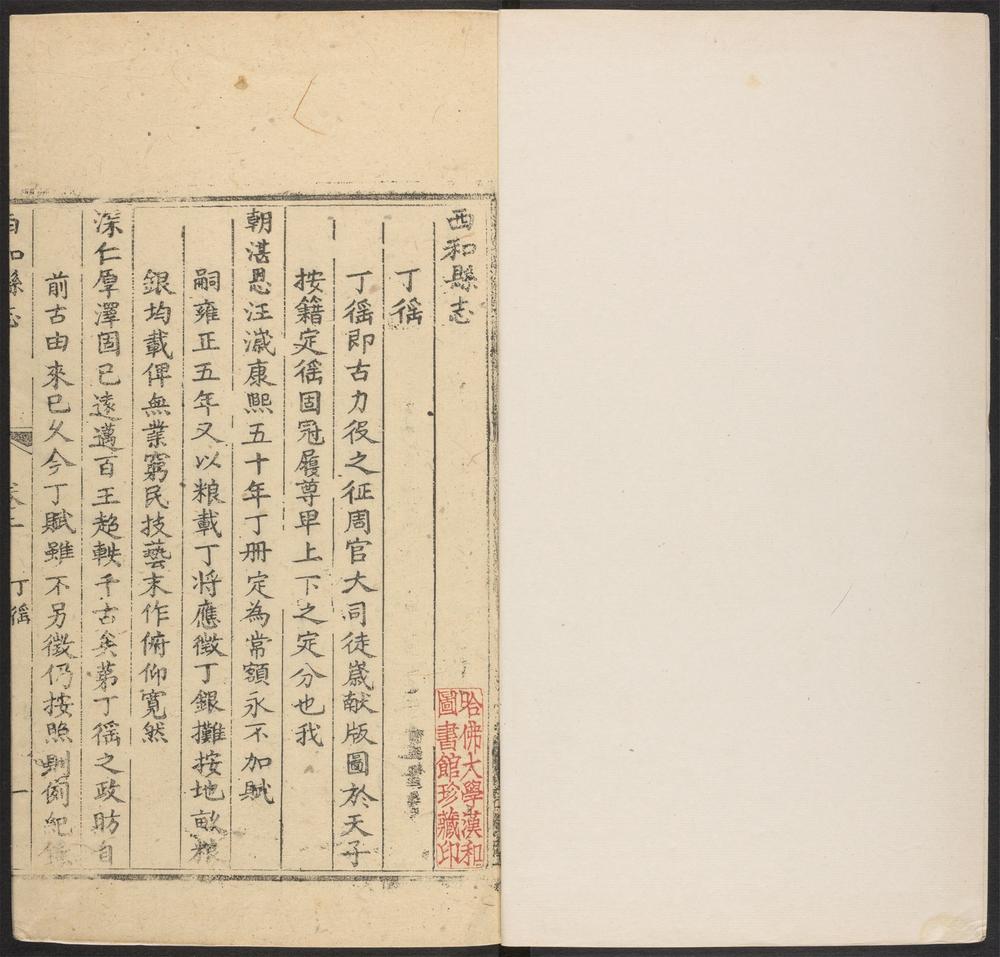 西和縣志
丁徭
丁徭即古力役之征周官大司徒歲献版圖於天子
按籍定徭固冠履尊卑上下之定分也我
朝湛恩汪濊康熙五十年丁册定為常額永不加賦
嗣雍正五年又以粮載丁将應徵丁銀攤按地畝粮
銀均載俾無業窮民技藝末作俯仰寬然
深仁厚澤固已逺邁百王超軼千古矣苐丁徭之政昉自
前古由來已久今丁賦雖不另徵仍按照則例紀
西和縣志
卷二
丁徭
一
哈佛大學漢和
圖書館珍藏印